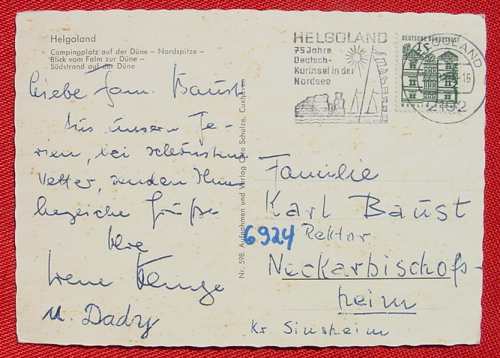 Helgoland
Campingplatz auf der Düne – Nordspitze –
Blick vom Falm zur Düne –
Südstrand auf der Düne
HELGOLAND
75 Jahre
Deutsch-
Kurinsel in der
Nordsee
DEUTSCHE BUNDESPOST
HELGOLAND
16
2192
Liebe Fam. Baust
Aus unseren Fe-
rien, bei schönstem
Wetter, senden Ihnen
herzliche Grüße
Ihre
Irene
u. Dady
Nr. 598 Aufnahmen und Verlag Otto Schulze, Cuxhaven
Familie
Karl Baust
6924 Rektor
Neckarbischofs-
heim
Kr Sinsheim